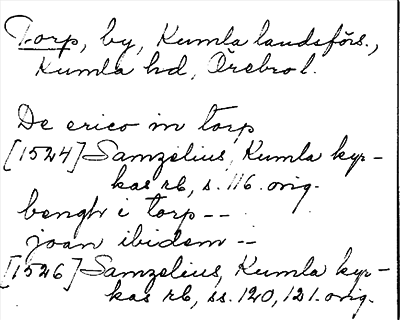 Torp, by, Kumla landsförs.,
Kumla hd, Örebro l.
De erico in torp
[1524] Samzelius, Kumla kyr-
kas rb, s. 116. orig.
bengh i torp --
joan ibidem --
[1526] Samzelius, Kumla kyr-
kas rb, ss. 120, 121. orig.